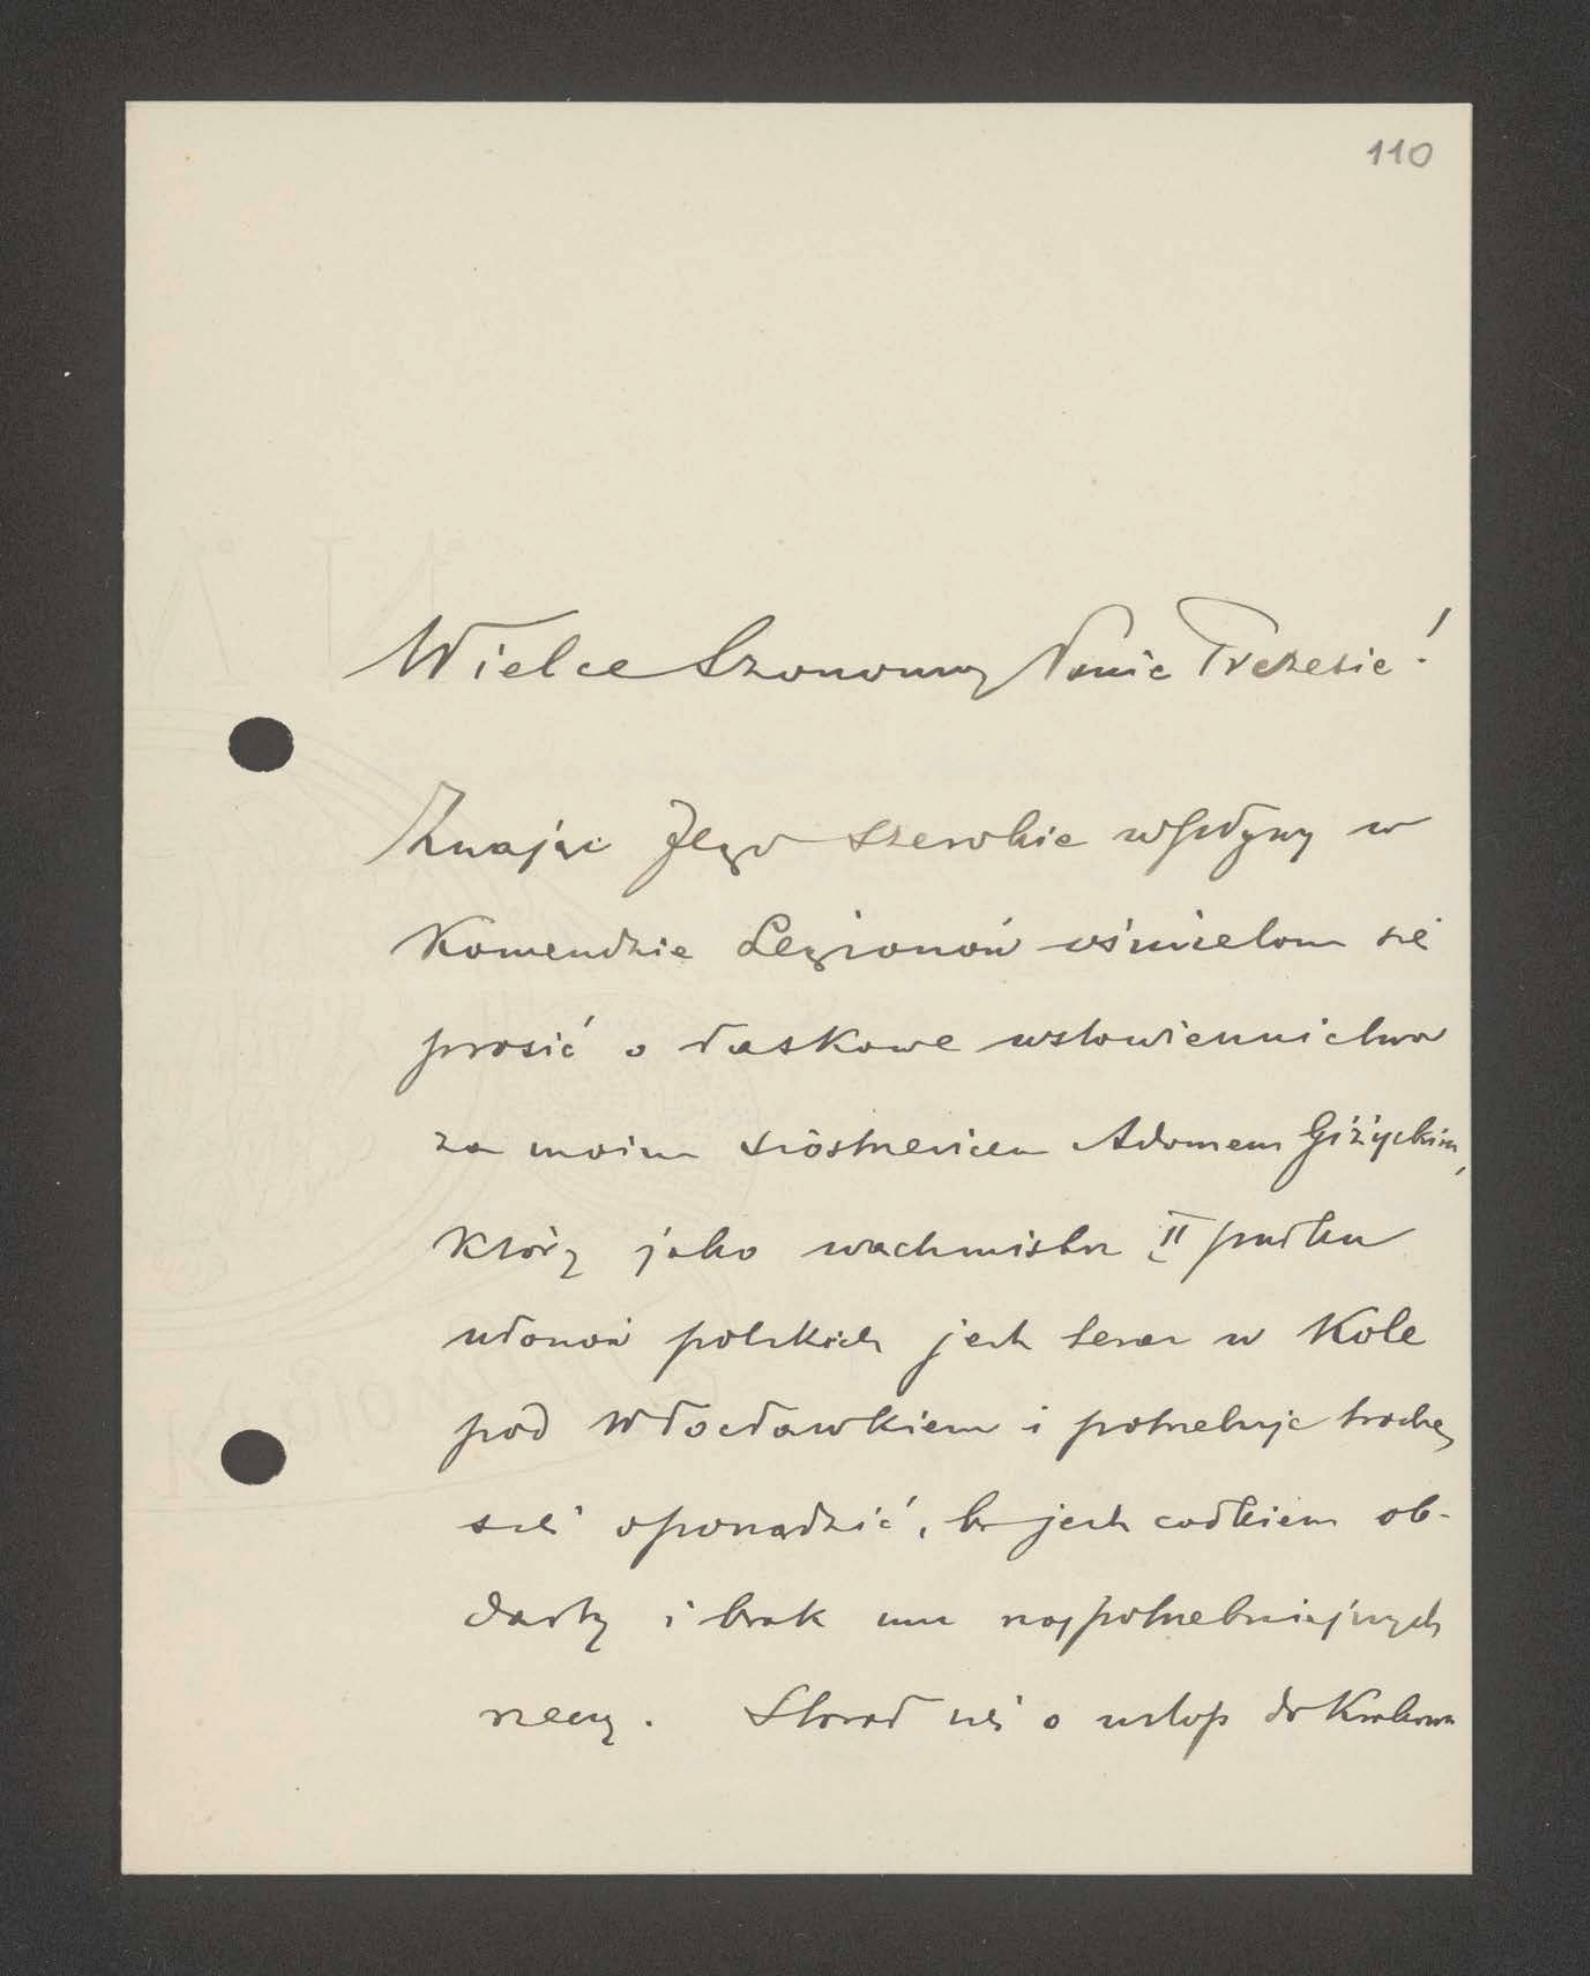 110
Wielce Szanowny Panie Prezesie!
Znając Jego szerokie wpływy w
Komendzie Legionów ośmielam się
prosić o łaskawe wstawiennictwo
za moim siostrzeńcem Adamem Giżyckim,
który jako wachmistrz II pułku
ułanów polskich jest teraz w Kole
pod Włocławkiem i potrzebuje trochę
się oporządzić, bo jest całkiem ob-
darty i brak mu najpotrzebniejszych
rzeczy. Starał się o urlop do Krakowa